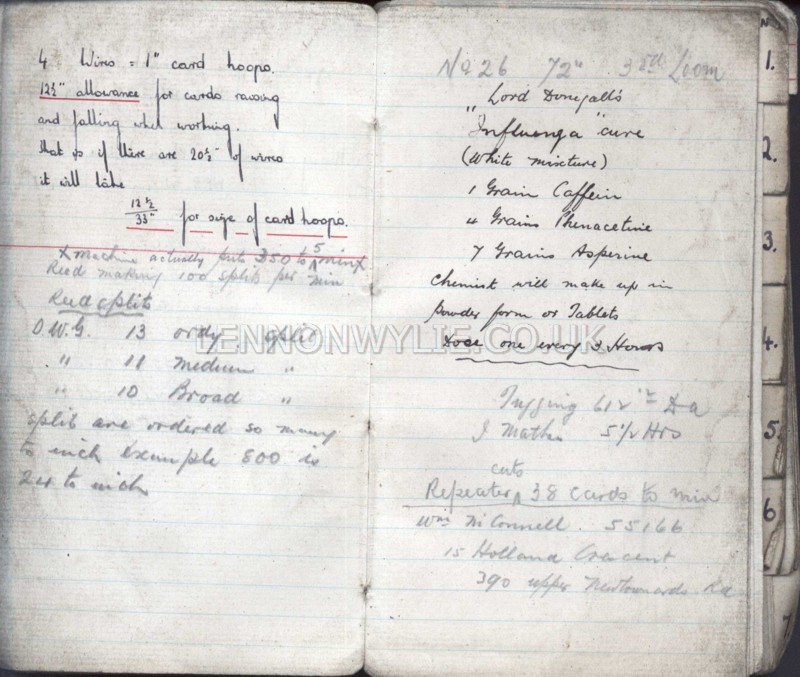 4 Wires = 1" card hoops.
12½" allowance for cards raising
and falling whil working.
that is if there are 20½" of wires
it will take
12½
33" for size of card hoops.
x machine actually puts 350 to 5 min x
Reed making 100 splits per min
Reed splits
O.W.G. 13 ordy split
" 11 medium "
" 10 Broad "
split are ordered so many
to inch example 800 is
to inch
No 26 72" Loom
" Lord Donegall's
Influenza "cure
(White mixture)
1 Grain Caffein
4 Grains Phenacetine
7 Grains Asperine
Chemist will make up in
Powder form or Tablets
Dose one every 3 Hours
612
5½ Hrs
cuts
Repeater 38 cards to min
Wm McConnell. 55166
15 Holland Crescent
390 upper Newtownards Rd
1.
2.
3.
4.
5
6
7
LENNONWYLIE.CO.UK